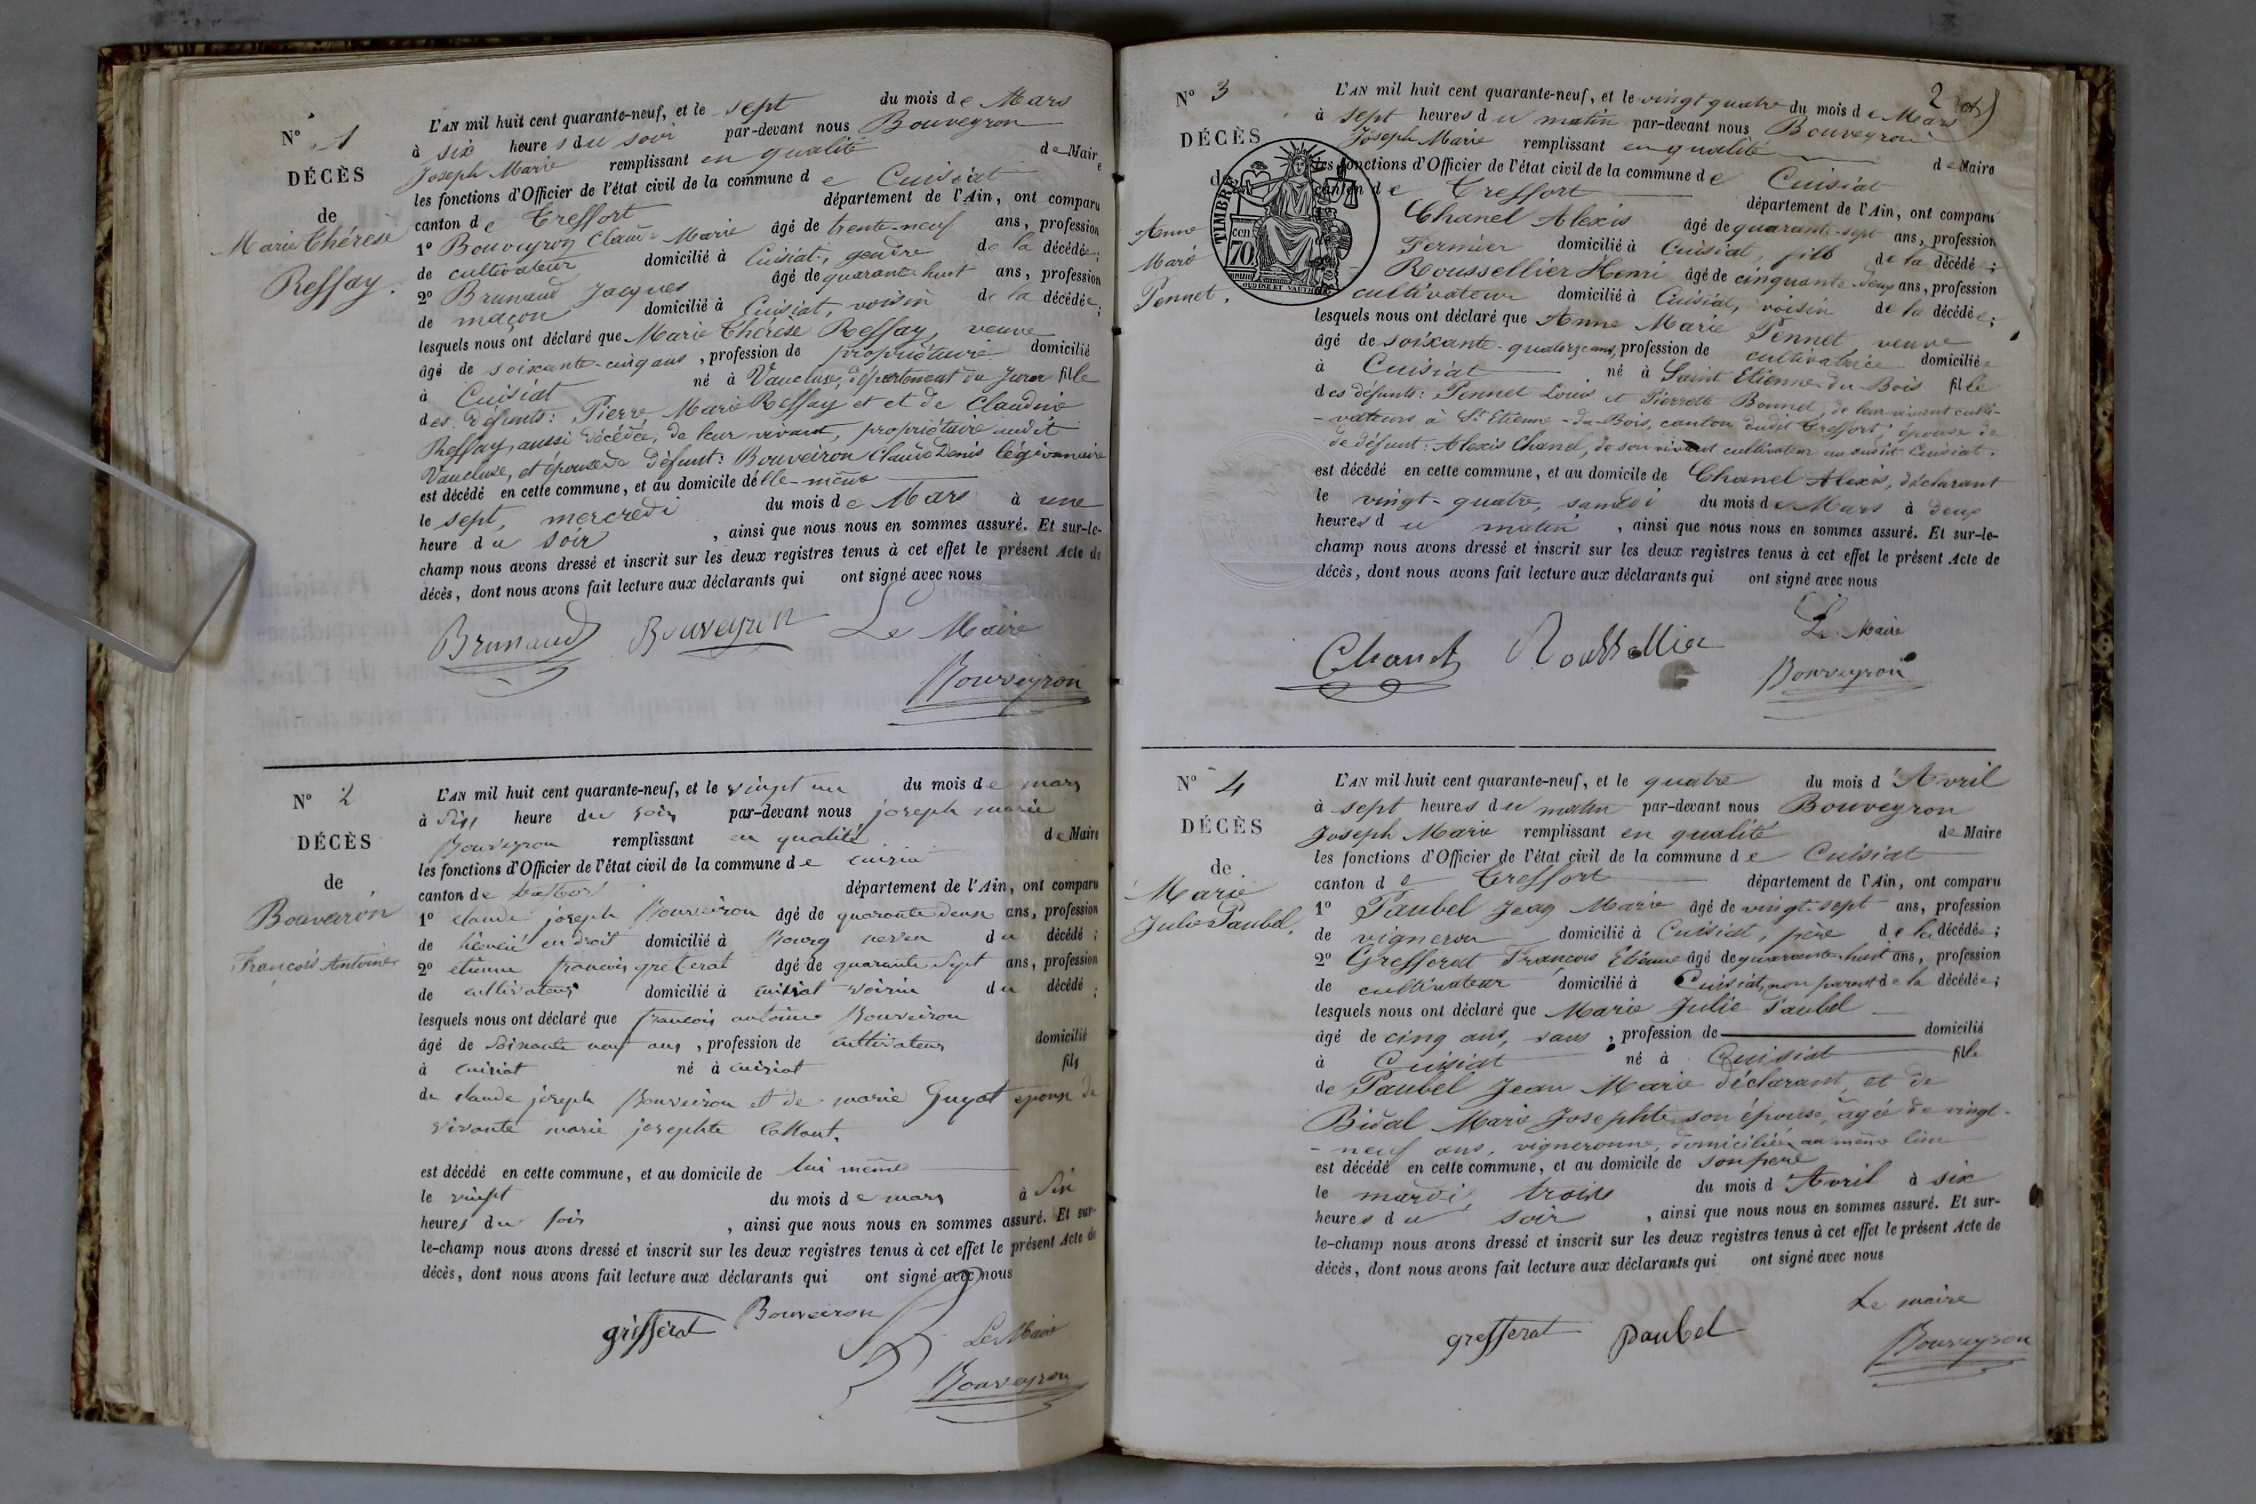 N° 1
DÉCÈS
de
Marie Thérèse
Reffay.
L'AN mil huit cent quarante-neuf, et le sept du mois de Mars
à six heures du soir par-devant nous Bouveyron
Joseph Marie remplissant en qualité de Maire
les fonctions d'Officier de l'état civil de la commune de Cuisiat
canton de Treffort département de l'Ain, ont comparu
1° Bouveyron Claude Marie âgé de trente-neuf ans, profession
de cultivateur domicilié à Cuisiat, gendre de la décédée;
2° Brunaud Jacques âgé de quarante huit ans, profession
de maçon domicilié à Cuisiat, voisin de la décédée;
lesquels nous ont déclaré que Marie Thérèse Reffay, veuve
âgé de soixante-cinq ans, profession de propriétaire domicilié
à Cuisiat né à Vaucluse, département du Jura fille
des défunts: Pierre Marie Reffay et et de Claudine
Reffay, aussi décédée, de leur vivant, propriétaire audit
Vaucluse, et épouse de défunt: Bouveiron Claude Denis légionnaire
est décédé en cette commune, et au domicile d'elle-même
le sept, mercredi du mois de Mars à une
heure du soir, ainsi que nous nous en sommes assuré. Et sur-le-
champ nous avons dressé et inscrit sur les deux registres tenus à cet effet le présent Acte de
décès, dont nous avons fait lecture aux déclarants qui ont signé avec nous
Brunaud Bouveyron Le Maire
Bouveyron
N° 2
DÉCÈS
de
Bouveiron
François Antoine
L'AN mil huit cent quarante-neuf, et le vingt un du mois de mars
à six heure du soir par-devant nous joseph marie
Bouveyron remplissant en qualité de Maire
les fonctions d'Officier de l'état civil de la commune de cuisia
canton de département de l'Ain, ont comparu
1° claude joseph Bouveiron âgé de quarante deux ans, profession
de en droit domicilié à Bourg neveu du décédé;
2° etienne francois greferat âgé de quarante sept ans, profession
de cultivateur domicilié à cuisiat voisin du décédé;
lesquels nous ont déclaré que francois antoine Bouveiron
âgé de soixante neuf ans, profession de cultivateur domicilié
à cuisiat né à cuisiat fils
de claude joseph Bouveiron et de marie Guyot epoux de
vivante marie josephte
est décédé en cette commune, et au domicile de lui même
le vingt du mois de mars à six
heures du soir, ainsi que nous nous en sommes assuré. Et sur-
le-champ nous avons dressé et inscrit sur les deux registres tenus à cet effet le présent Acte de
décès, dont nous avons fait lecture aux déclarants qui ont signé avec nous
grefferat Bouveiron
Le Maire
Bouveyron
2
N° 3
DÉCÈS
de
Anne
Marie
Pennet.
TIMBRE
70
L'AN mil huit cent quarante-neuf, et le vingt quatre du mois de Mars
à sept heures du matin par-devant nous Bouveyron
Joseph Marie remplissant en qualité de Maire
les fonctions d'Officier de l'état civil de la commune de Cuisiat
canton de Treffort département de l'Ain, ont comparu
Chanel Alexis âgé de quarante-sept ans, profession
Fermier domicilié à Cuisiat, fils de la décédée;
Roussellier Henri âgé de cinquante-deux ans, profession
cultivateur domicilié à Cuisiat, voisin de la décédée;
lesquels nous ont déclaré que Anne Marie Pennet, veuve
âgé de soixante-quatorze ans, profession de cultivatrice domiciliée
à Cuisiat né à Saint Etienne-du-Bois fille
des défunts: Pennet Louis et Pierrette Bonnet, de leur vivant culti-
-vateurs à St Etienne-du-Bois, canton dudit Treffort; épouse de
de défunt: Alexis Chanel, de son vivant cultivateur au susdit Cuisiat.
est décédé en cette commune, et au domicile de Chanel Alexis, déclarant
le vingt-quatre, samedi du mois de Mars à deux
heures du matin, ainsi que nous nous en sommes assuré. Et sur-le-
champ nous avons dressé et inscrit sur les deux registres tenus à cet effet le présent Acte de
décès, dont nous avons fait lecture aux déclarants qui ont signé avec nous
Chanel Roussellier Le Maire
Bouveyron
N° 4
DÉCÈS
de
Marie
Julie Paubel.
L'AN mil huit cent quarante-neuf, et le quatre du mois d'Avril
à sept heures du matin par-devant nous Bouveyron
Joseph Marie remplissant en qualité de Maire
les fonctions d'Officier de l'état civil de la commune de Cuisiat
canton de Treffort département de l'Ain, ont comparu
1° Paubel Jean Marie âgé de vingt-sept ans, profession
de vigneron domicilié à Cuisiat, père de la décédée;
2° Grefferat François Etienne âgé de quarante-huit ans, profession
de cultivateur domicilié à Cuisiat, non parent de la décédée;
lesquels nous ont déclaré que Marie Julie Paubel
âgé de cinq ans, sans, profession de domicilié
à Cuisiat né à Cuisiat fille
de Paubel Jean Marie déclarant, et de
Bidal Marie Josephte son épouse, agée de vingt-
-neuf ans, vigneronne, domiciliée au même lieu
est décédé en cette commune, et au domicile de son père
le mardi, trois du mois d'Avril à six
heures du soir, ainsi que nous nous en sommes assuré. Et sur-
le-champ nous avons dressé et inscrit sur les deux registres tenus à cet effet le présent Acte de
décès, dont nous avons fait lecture aux déclarants qui ont signé avec nous
Le maire
grefferat paubel Bouveyron